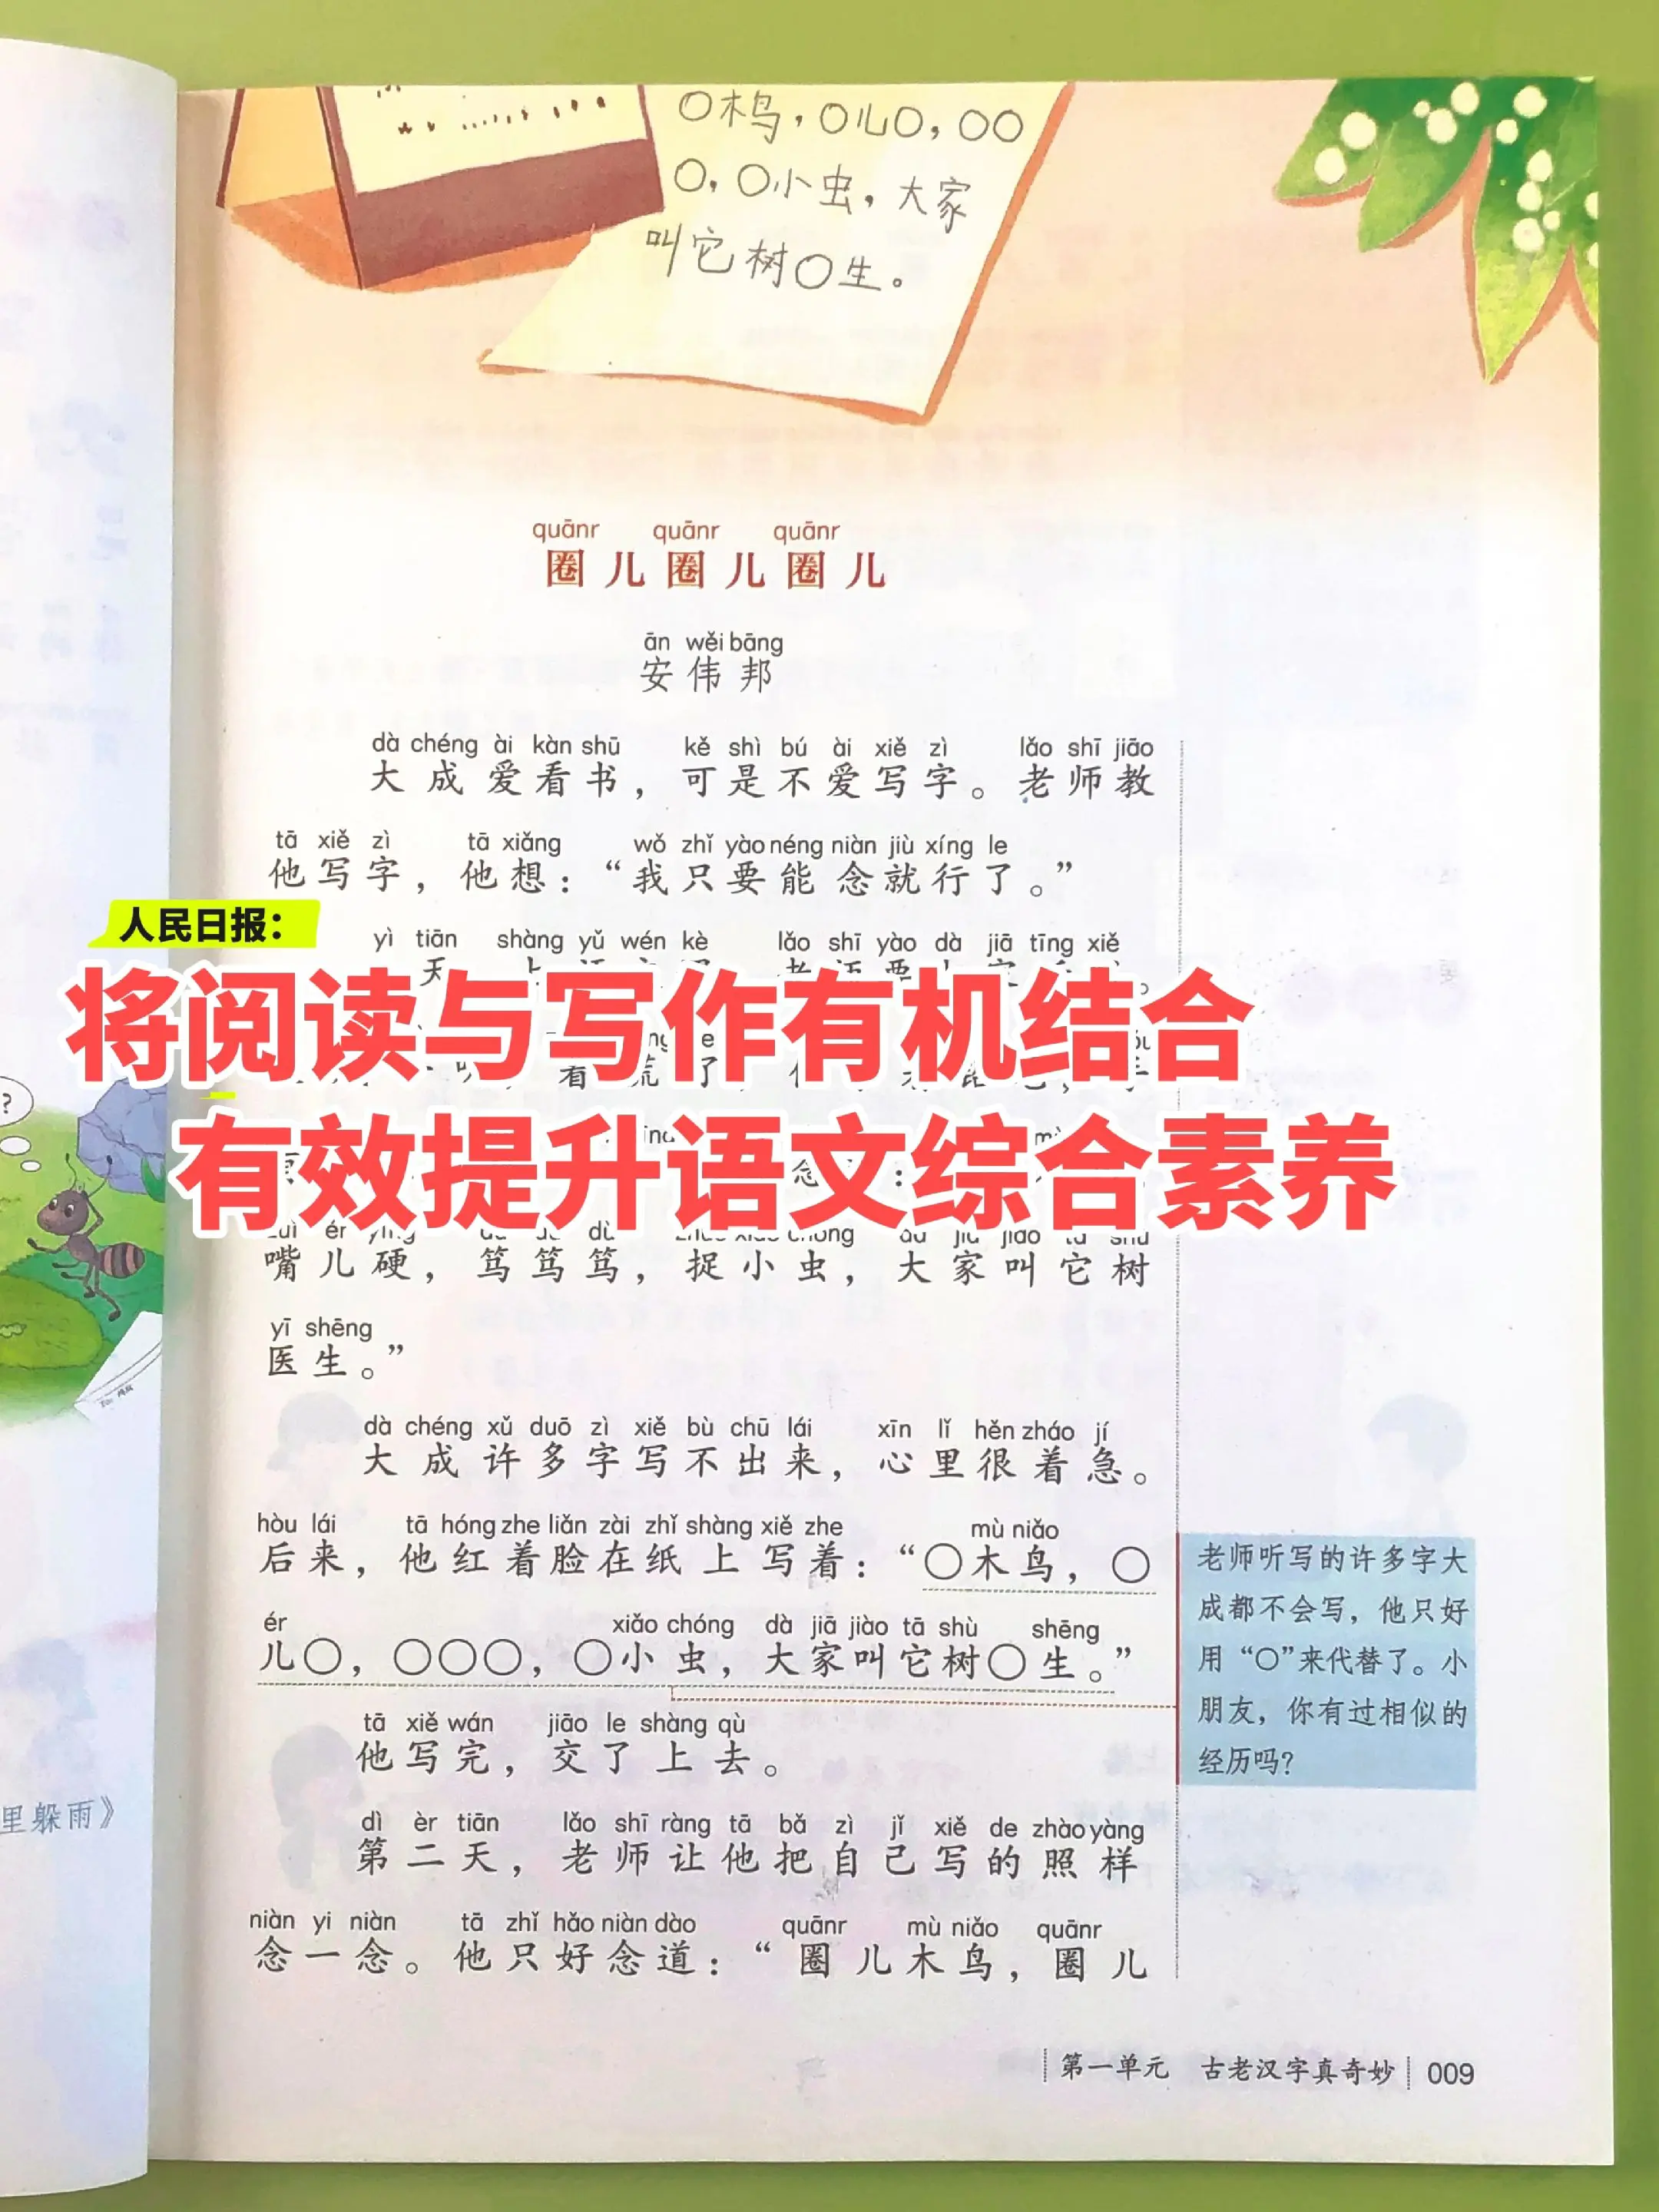 〇木鸟，〇儿〇，〇〇
〇，〇小虫，大家
叫它树〇生。
quānr quānr quānr
圈儿圈儿圈儿
ān wěi bāng
安伟邦
dà chéng ài kàn shū kě shì bú ài xiě zì lǎo shī jiāo
大成爱看书，可是不爱写字。老师教
tā xiě zì tā xiǎng wǒ zhǐ yào néng niàn jiù xíng le
他写字，他想：“我只要能念就行了。”
人民日报：
yì tiān shàng yǔ wén kè lǎo shī yào dà jiā tīng xiě
将阅读与写作有机结合
有效提升语文综合素养
嘴儿硬，笃笃笃，捉小虫，大家叫它树
yī shēng
医生。”
dà chéng xǔ duō zì xiě bù chū lái xīn lǐ hěn zháo jí
大成许多字写不出来，心里很着急。
hòu lái tā hóng zhe liǎn zài zhǐ shàng xiě zhe mù niǎo
后来，他红着脸在纸上写着：“〇木鸟，〇
ér xiǎo chóng dà jiā jiào tā shù shēng
儿〇，〇〇〇，〇小虫，大家叫它树〇生。”
tā xiě wán jiāo le shàng qù
他写完，交了上去。
dì èr tiān lǎo shī ràng tā bǎ zì jǐ xiě de zhào yàng
第二天，老师让他把自己写的照样
niàn yi niàn tā zhǐ hǎo niàn dào quānr mù niǎo quānr
念一念。他只好念道：“圈儿木鸟，圈儿
老师听写的许多字大
成都不会写，他只好
用“〇”来代替了。小
朋友，你有过相似的
经历吗？
里躲雨》
?
第一单元 古老汉字真奇妙 009